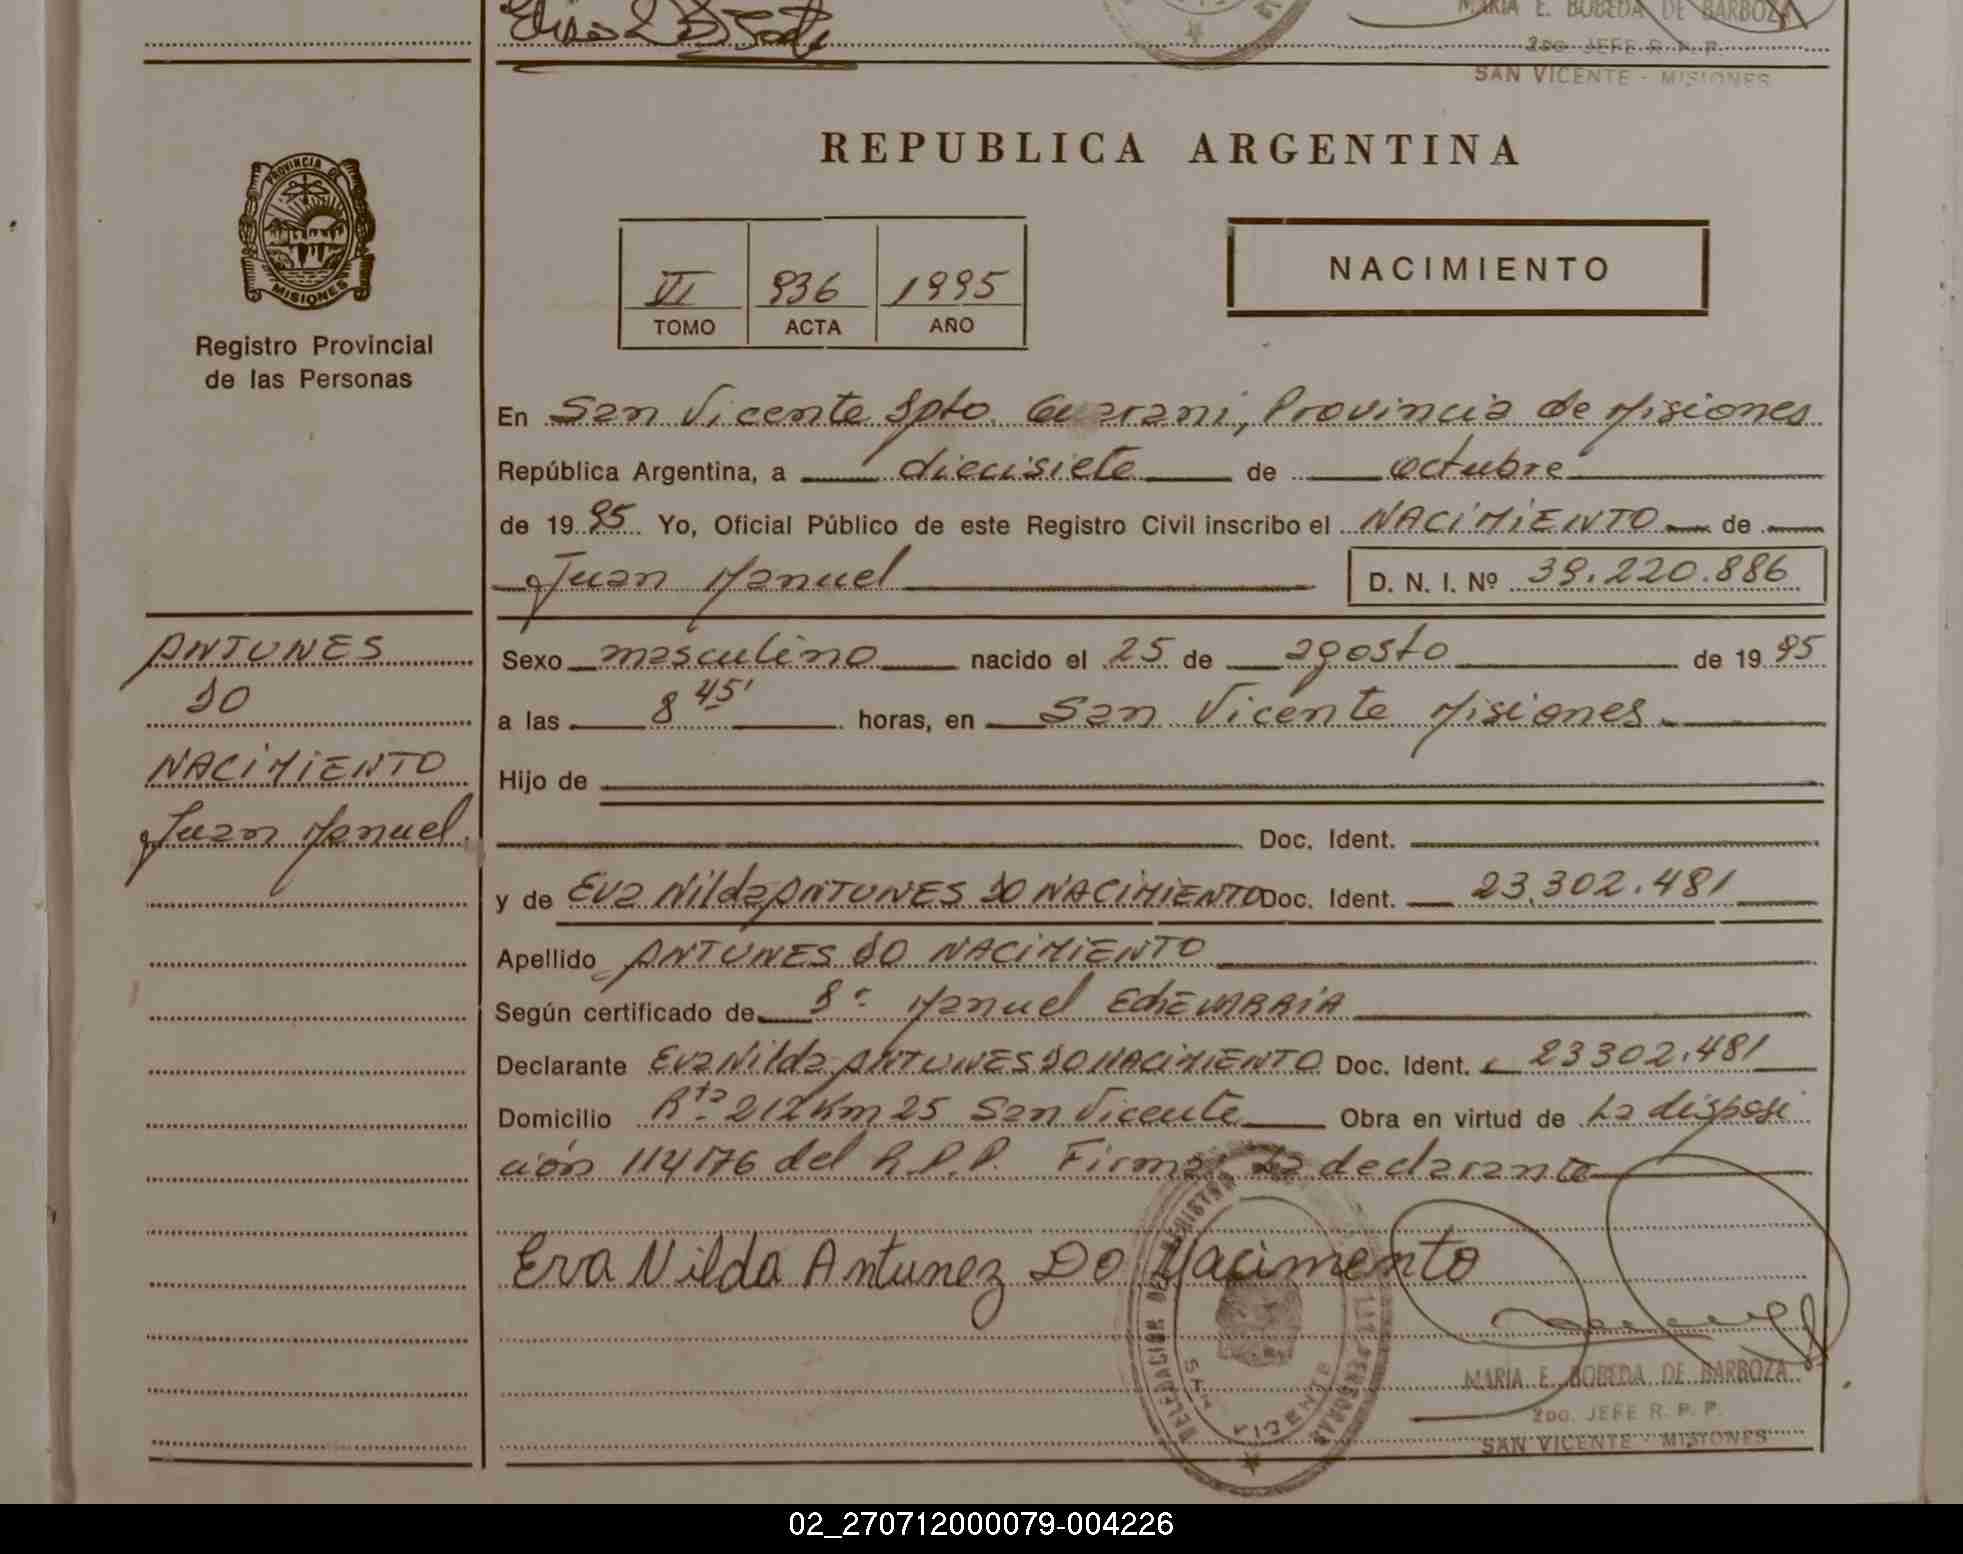 MARIA E. BOBEDA DE BARBOZA
2do. JEFE R. P. P.
SAN VICENTE - MISIONES
REPUBLICA ARGENTINA
PROVINCIA DE
MISIONES
Registro Provincial
de las Personas
VI 936 1995
TOMO ACTA AÑO
NACIMIENTO
En San Vicente Dpto. Guarani, Provincia de Misiones
República Argentina, a diecisiete de octubre
de 1995 Yo, Oficial Público de este Registro Civil inscribo el NACIMIENTO de
Juan Manuel D. N. I. Nº 39.220.886
ANTUNES
DO
NACIMIENTO
Juan Manuel
Sexo masculino nacido el 25 de agosto de 1995
a las 8 45' horas, en San Vicente Misiones
Hijo de
Doc. Ident.
y de Eva Nilda ANTUNES DO NACIMIENTO Doc. Ident. 23.302.481
Apellido ANTUNES DO NACIMIENTO
Según certificado de Dr Manuel EchEVARRIA
Declarante Eva Nilda ANTUNES DO NACIMIENTO Doc. Ident. 23302.481
Domicilio Rta 212 Km 25 San Vicente Obra en virtud de La disposi
ción 114176 del R.P.P. Firma La declarante
Eva Nilda Antunez Do Nacimento
DELEGACION DEL REGISTRO DE LAS PERSONAS
SAN VICENTE
MARIA E. BOBEDA DE BARBOZA
2do. JEFE R. P. P.
SAN VICENTE - MISIONES
02_270712000079-004226